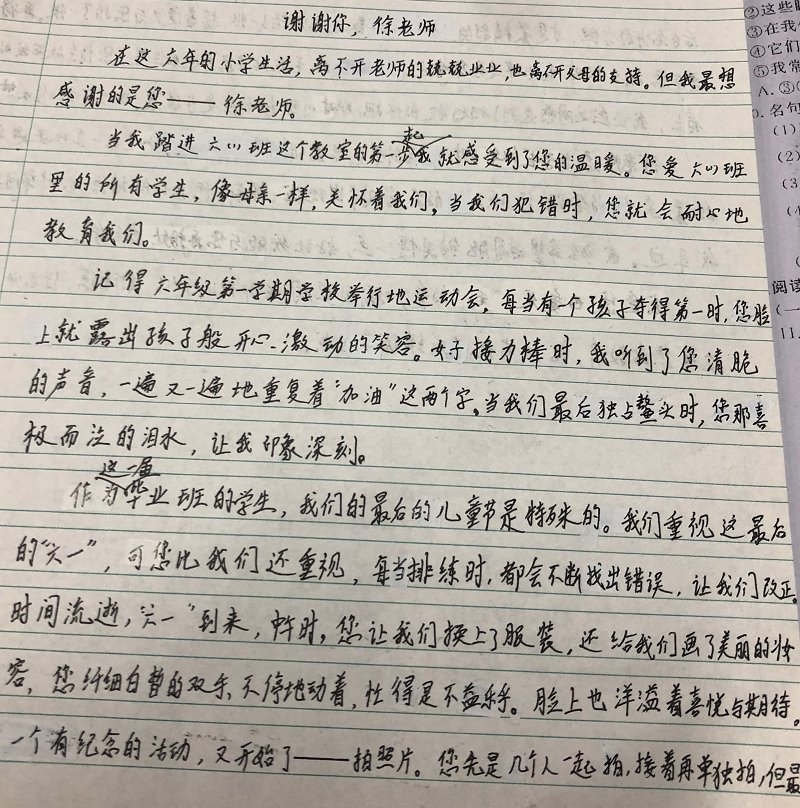 谢谢你，徐老师
在这六年的小学生活，离不开老师的兢兢业业，也离不开父母的支持。但我最想
感谢的是您——徐老师。
当我踏进六(1)班这个教室的第一步起我就感受到了您的温暖。您爱六(1)班
里的所有学生，像母亲一样，关怀着我们，当我们犯错时，您就会耐心地
教育我们。
记得六年级第一学期学校举行地运动会，每当有一个孩子夺得第一时，您脸
上就露出孩子般开心、激动的笑容。女子接力棒时，我听到了您清脆
的声音，一遍又一遍地重复着“加油”这两个字。当我们最后独占鳌头时，您那喜
极而泣的泪水，让我印象深刻。
作为这一届毕业班的学生，我们的最后的儿童节是特殊的。我们重视这最后
的“六一”，可您比我们还重视，每当排练时，都会不断找出错误，让我们改正。
时间流逝，“六一”到来，中午时，您让我们换上了服装，还给我们画了美丽的妆
容，您纤细白皙的双手，不停地动着，忙得是不亦乐乎。脸上也洋溢着喜悦与期待。
一个有纪念的活动，又开始了——拍照片。您先是几个人一起拍，接着再单独拍，但最
②这些
③在我
④它们
⑤我常
A. ③
名句
(1)
(2)
(3
阅读
(一
11.